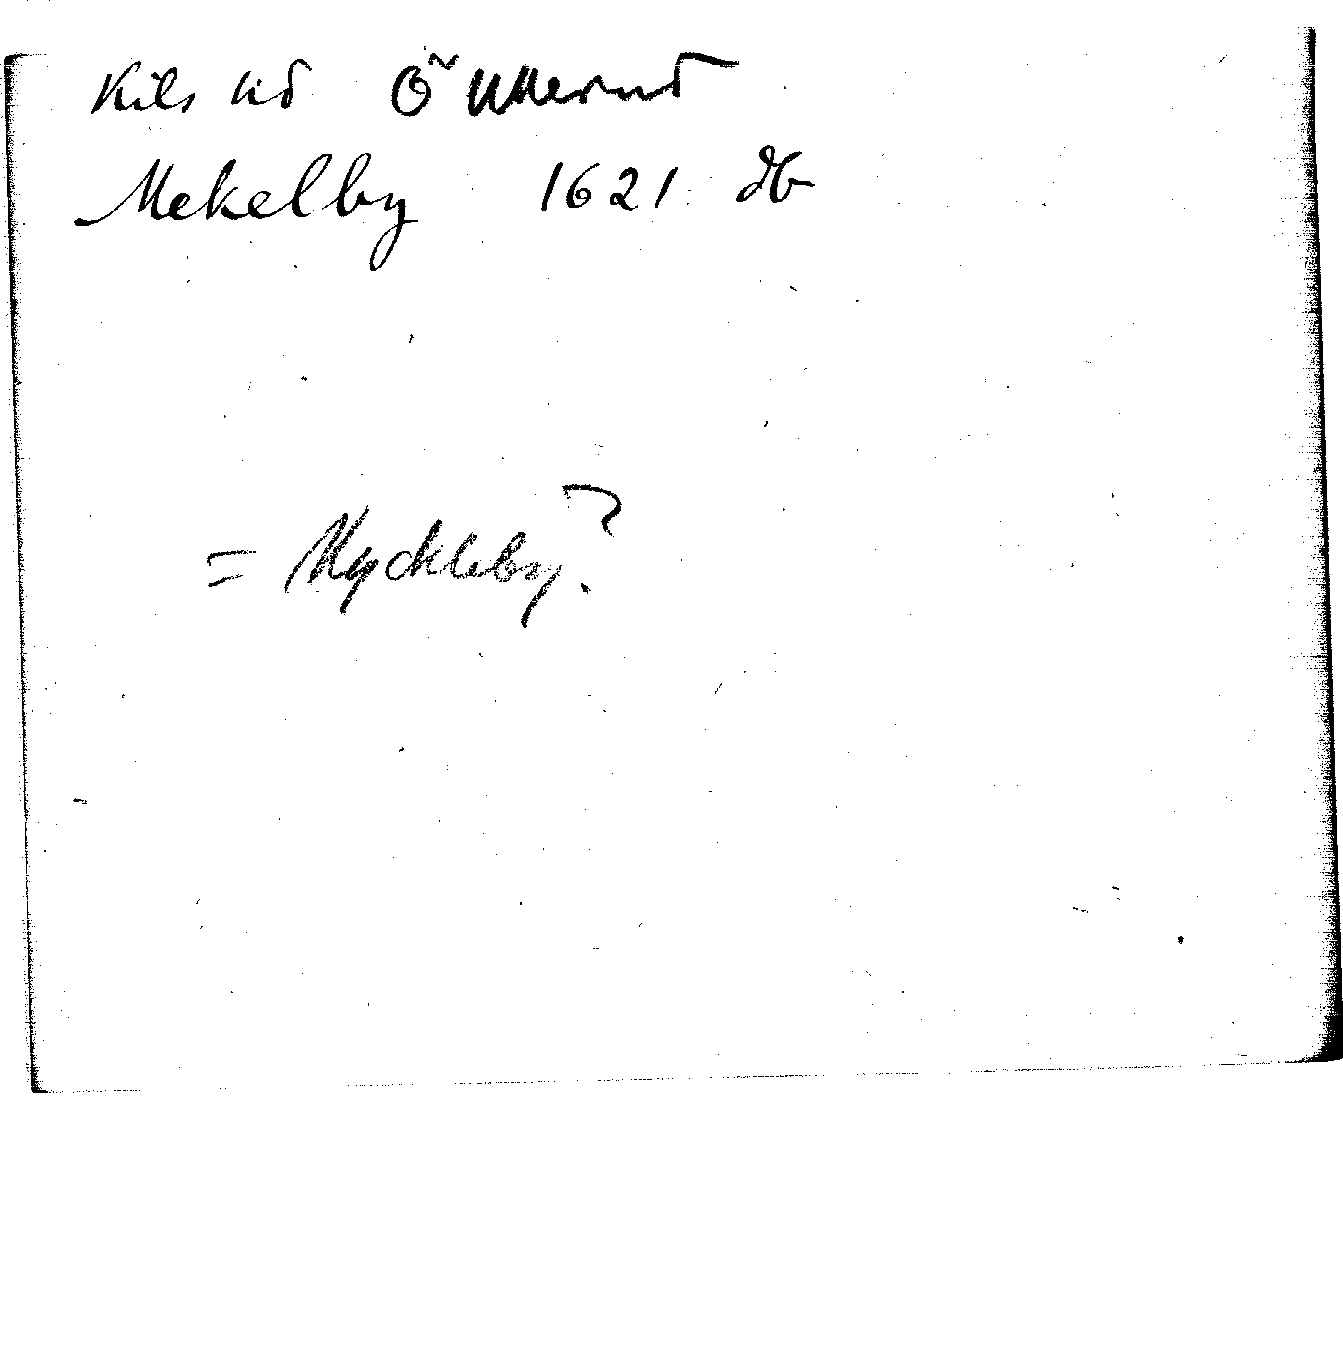 Kils hd Ö Ullerud
Mekelby 1621 db
= Myckleby?